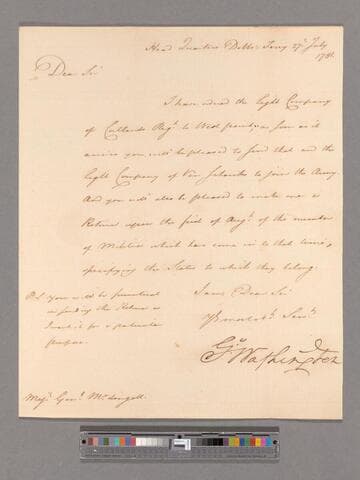 Head Quarters Dobbs Ferry 27th July
1781
Dear Sir
I have ordered the Light Company
of Cortlandts Regt. to West point, as soon as it
arrives you will be pleased to send that and the
Light Company of Van Schaicks to join the Army.
And you will also be pleased to make me a
Return upon the first of Augt. of the number
of Militia which has come in to that time,
specifying the States to which they belong.
I am Dear Sir
Yr. most obt. Servt.
Go: Washington
P.S. you will be punctual
in sending the Return as
I want it for a particular
purpose.
Majr. Genl. McDougall.